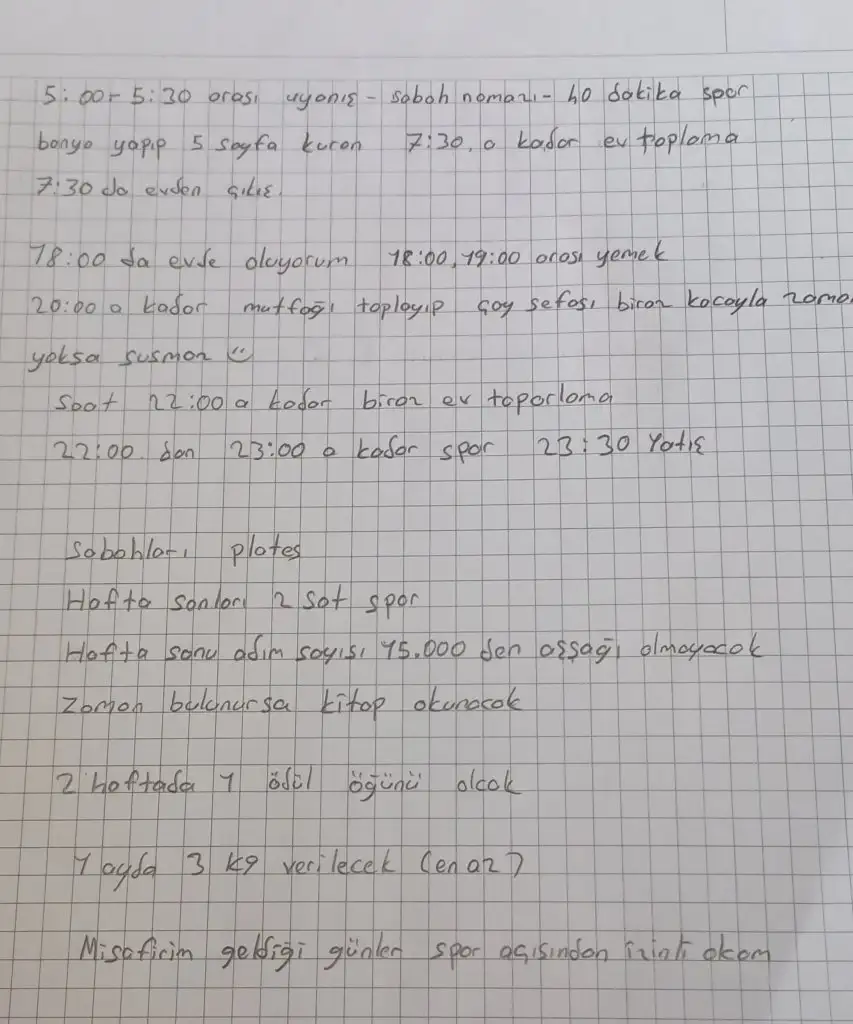 5:00-5:30 arası uyanış - sabah namazı - 40 dakika spor
banyo yapıp 5 sayfa kuran 7:30, a kadar ev toplama
7:30 da evden çıkış.
18:00 da evde oluyorum 18:00, 19:00 arası yemek
20:00 a kadar mutfağı toplayıp çay sefası biraz kocayla zama
yoksa susmaz
Saat 22:00 a kadar biraz ev toparlama
22:00 dan 23:00 a kadar spor 23:30 Yatış
Sabahları plates
Hafta sonları 2 sat spor
Hafta sonu adım sayısı 15.000 den aşşağı olmayacak
Zaman bulunursa kitap okunacak
2 haftada 1 ödül öğünü olcak
1 ayda 3 kg verilecek (en az)
Misafirim geldiği günler spor açısından izinli